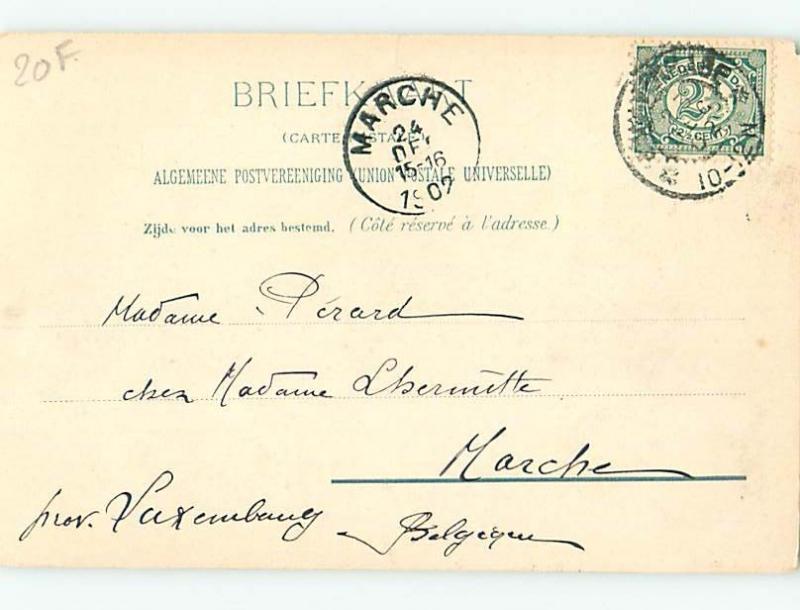 20F.
BRIEFKAART
(CARTE POSTALE)
ALGEMEENE POSTVEREENIGING (UNION POSTALE UNIVERSELLE)
Zijde voor het adres bestemd. (Côté réservé à l'adresse.)
MARCHE
24
DEC
15-16
1902
NEDERLAND
2½
(2½ CENT)
10-
Madame Pérard
chez Madame Lhermitte
Marche
prov. Luxembourg
Belgique